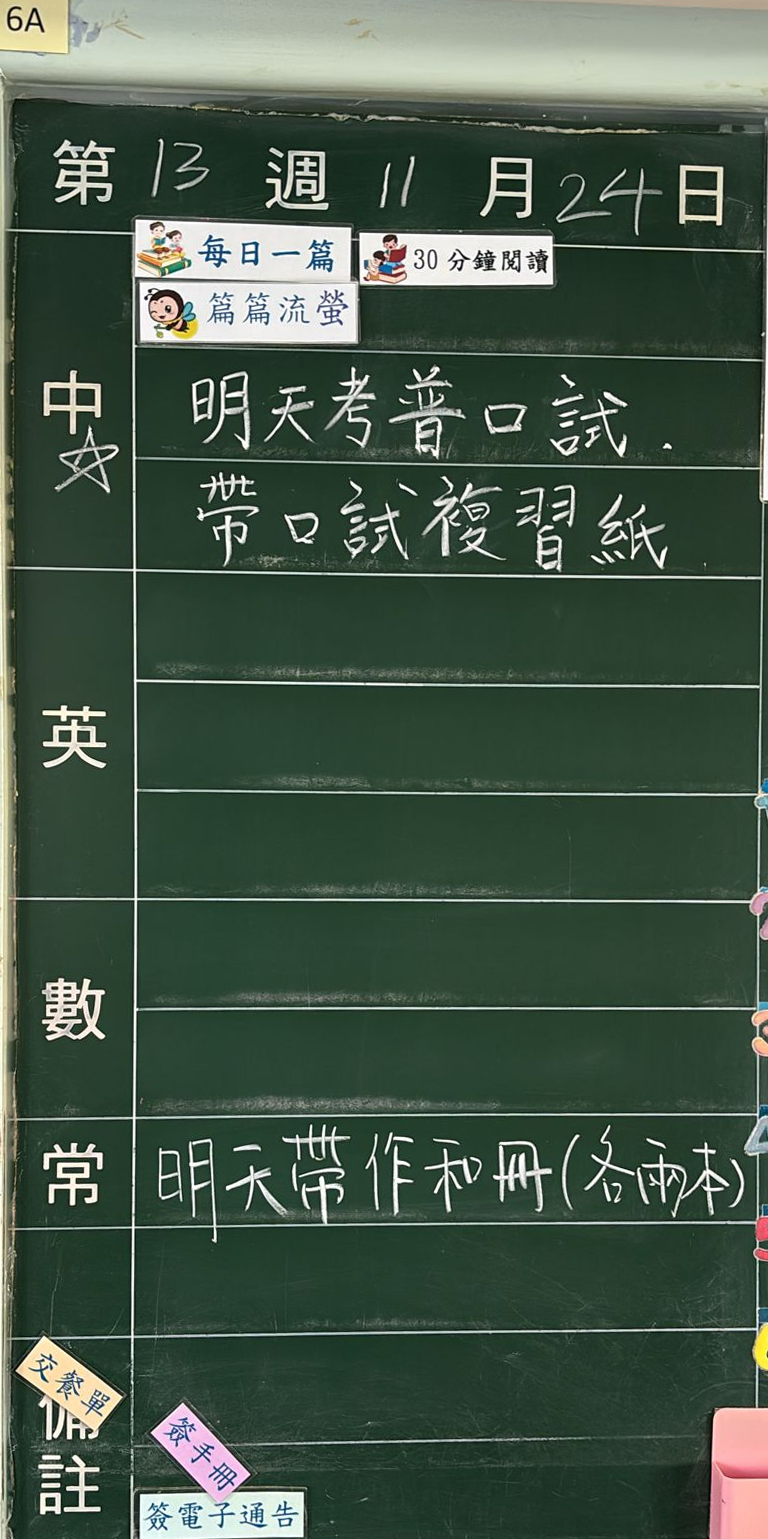 6A
第 13 週 11 月 24 日
每日一篇 30 分鐘閱讀
篇篇流螢
中
明天考普口試.
帶口試複習紙
英
數
常 明天帶作和冊(各兩本)
交餐單
備註
簽手冊
簽電子通告